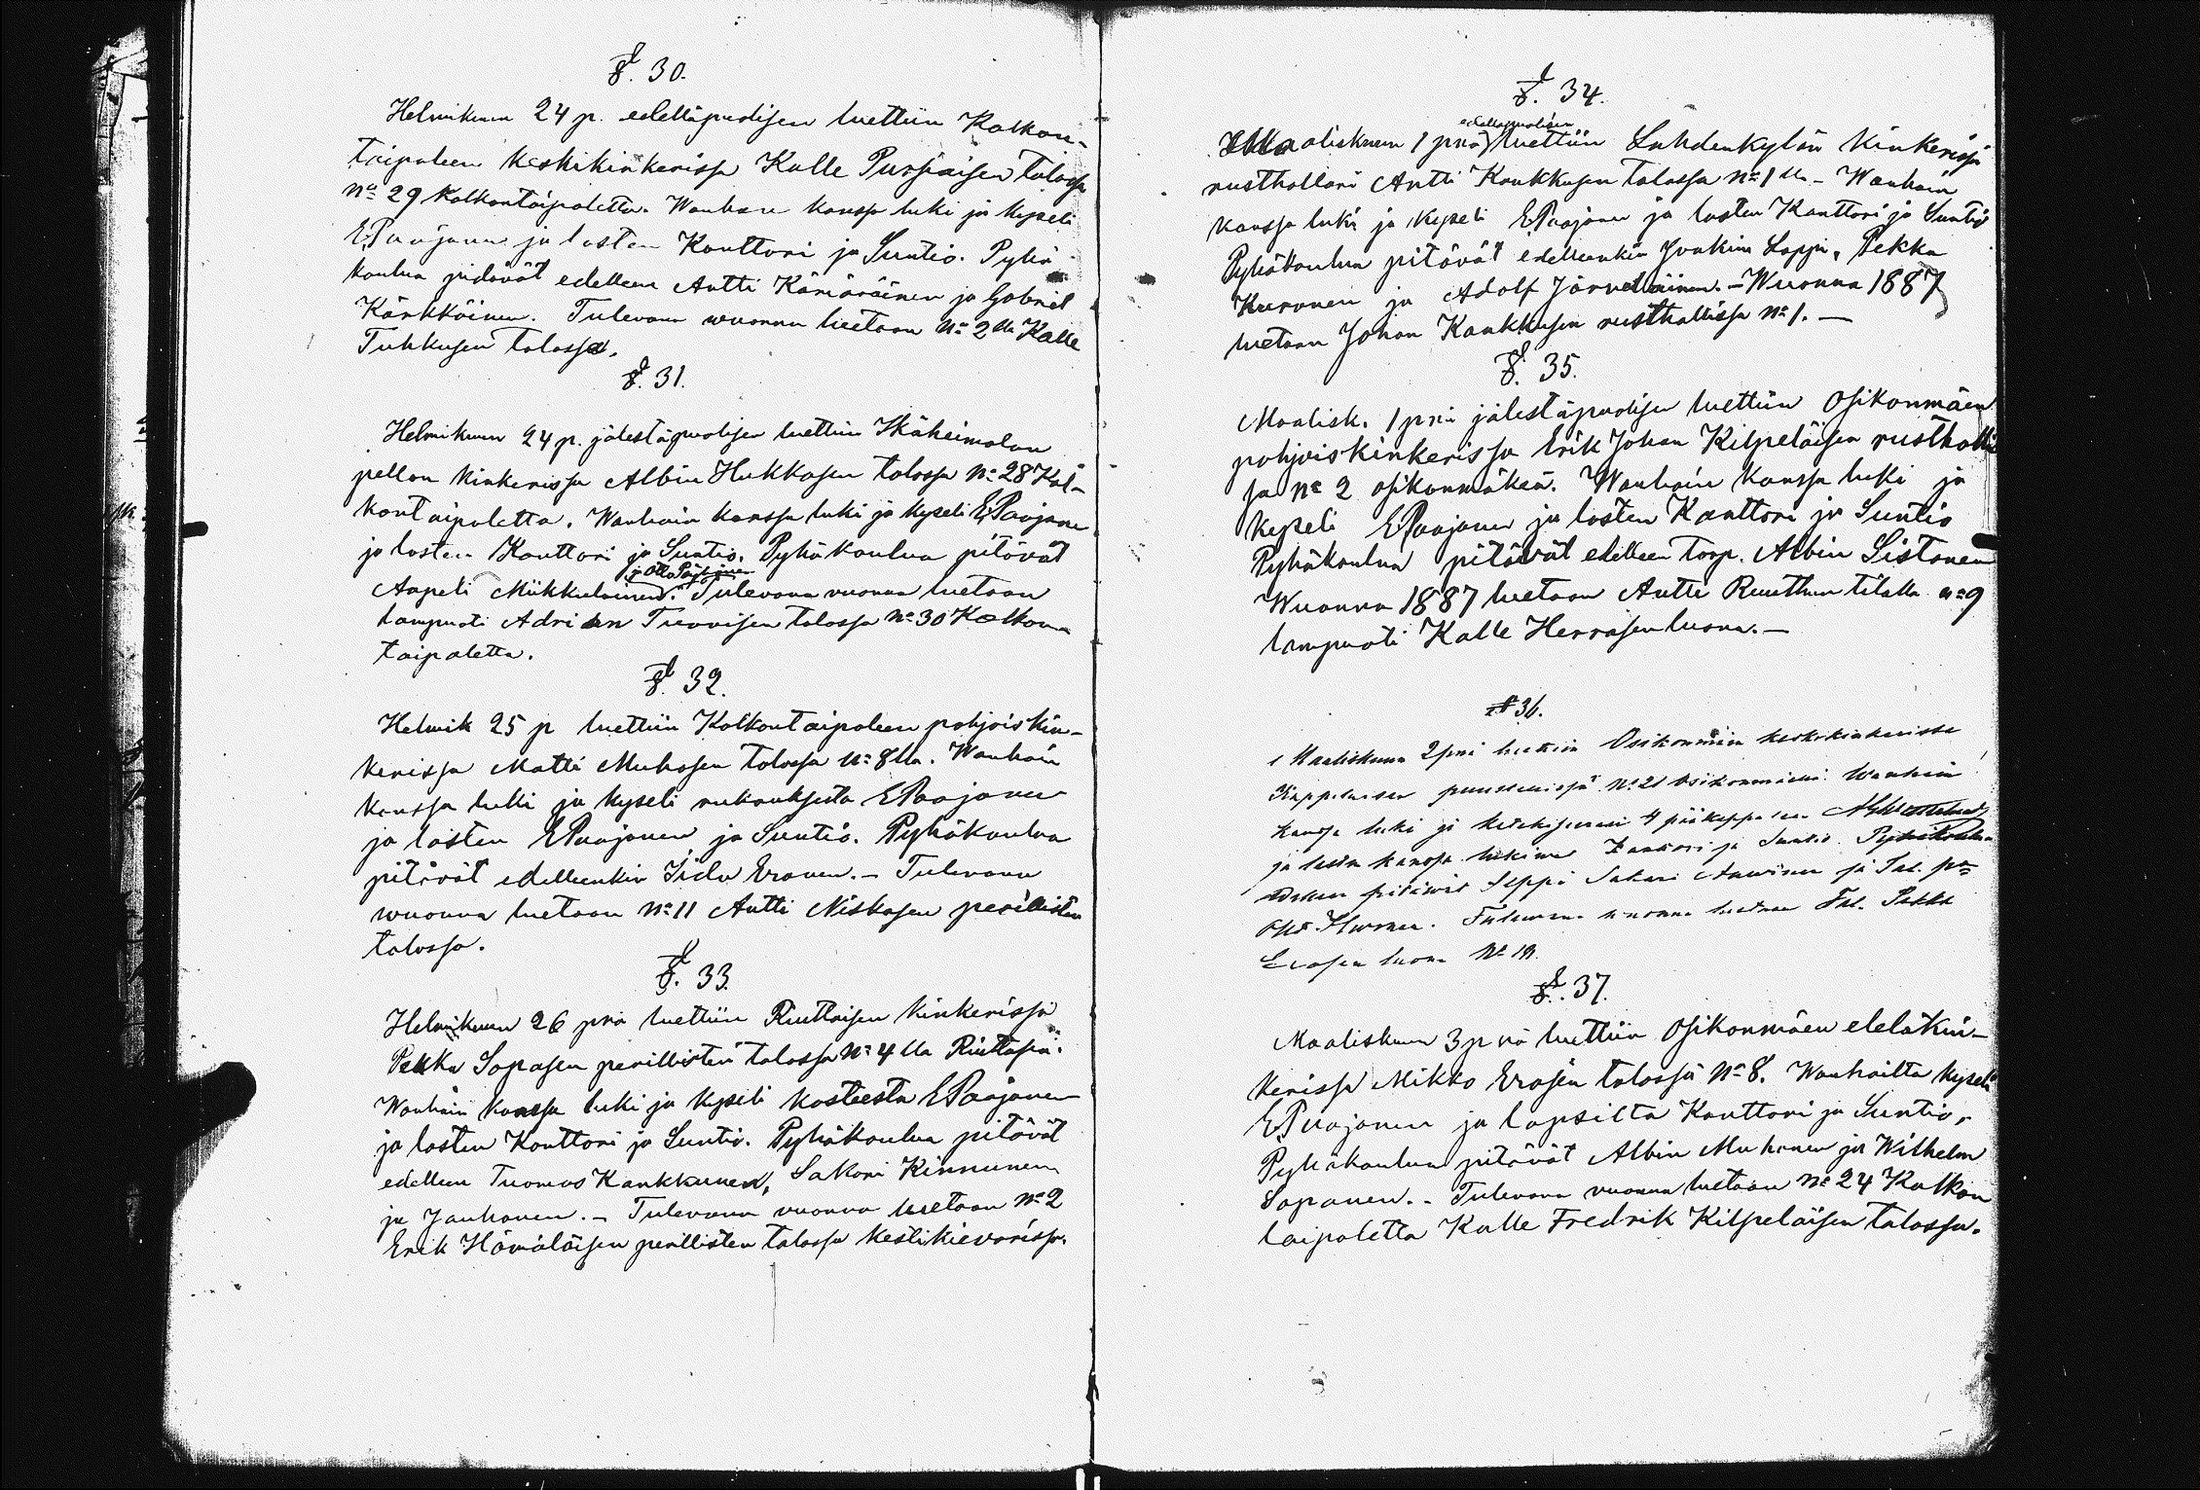 §. 30.
Helmikuun 24 p. edelläpuolisen luettiin Kalkon-
taipaleen keskikinkerissa Kalle Pursiaisen talossa
No 29 Kalkontaipaletta. Wanhain kanssa luki ja kyseli
EPaajanen ja lasten Kanttori ja Suntio. Pyhä
koulua pidävät edelleen Antti Kämäräinen ja Gabriel
Kärkkäinen. Tulevana wuonna luetaan No 2lla Kalle
Tuhkusen talossa.
§. 31.
Helmikuun 24 p. jälestäpuolisen luettiin Ikäheimolan
pellon kinkerissa Albin Hukkasen talossa No 28 Kal-
kontaipaletta. Wanhain kanssa luki ja kyseli EPaajanen
ja lasten Kanttori ja Suntio. Pyhäkoulua pitävät
Aapeli Miikkulainen. Tulevana vuonna luetaan
lampuoti Adrian Tuovisen talossa No 30 Kalkon-
taipaletta.
§. 32.
Helmik 25 p luettiin Kalkontaipaleen pohjoiskin-
kerissa Matti Muhosen talossa No 8lla. Wanhain
kanssa luki ja kyseli rukouksesta EPaajanen
ja lasten EPaajanen ja Suntio. Pyhäkoulua
pitävät edelleenkin Iida Eronen. – Tulevana
wuonna luetaan No 11 Antti Niskasen perillisten
talossa.
§. 33.
Helmikuun 26 pnä luettiin Riuttaisen kinkerissä
Pekka Sopasen perillisten talossa No 4lla Riuttasia.
Wanhain kanssa luki ja kyseli kasteesta EPaajanen
ja lasten Kanttori ja Suntio. Pyhäkoulua pitävät
edelleen Tuomas Kankkunen, Sakari Kinnunen
ja Janhonen. – Tulevana vuonna luetaan No 2
Erik Hämäläisen perillisten talossa Kestikievarissa.
§. 34.
edelläpuolisen
Maaliskuun 1 pnä luettiin Lahdenkylän kinkerissä
rusthollari Antti Kankkusen talossa No 1lla – Wanhain
kanssa luki ja kyseli EPaajanen ja lasten Kanttori ja Suntio
Pyhäkoulua pitävät edelleenkin Joakim Lappi, Pekka
Kuronen ja Adolf Järveläinen. – Wuonna 1887
luetaan Johan Kankkusen rusthollissa No 1. –
§. 35.
Maalisk. 1 pnä jälestäpuolisen luettiin Osikonmäen
pohjoiskinkerissa Erik Johan Kilpeläisen rusthollis
sa No 2 Osikonmäkeä. Wanhain kanssa luki ja
kyseli EPaajanen ja lasten Kanttori ja Suntio
Pyhäkoulua pitävät edelleen torp. Albin Sistonen
Wuonna 1887 luetaan Antti Ruuthin tilalla No 9
lampuoti Kalle Herrasen luona. –
§ 36.
Maaliskuun 2 pnä luettiin Osikonmäen keskikinkerissa
No 21 Osikonmäkeä. Wanhain
kanssa luki ja 4 pääkappaleen
ja lasten kanssa lukivat Kanttori ja Suntio. Pyhäkoulua
pitävät Seppä Sakari ja Tal. po
Tulevana vuonna luetaan Tal. Pekka
Erosen luona No 19.
§. 37.
Maaliskuun 3 pnä luettiin Osikonmäen eteläkin-
kerissa Mikko Erosen talossa No 8. Wanhoilta kyseli
EPaajanen ja lapsilta Kanttori ja Suntio.
Pyhäkoulua pitävät Albin Muhonen ja Wilhelm
Sopanen. – Tulevana vuonna luetaan No 24 Kalkon
taipaletta Kalle Fredrik Kilpeläisen talossa.